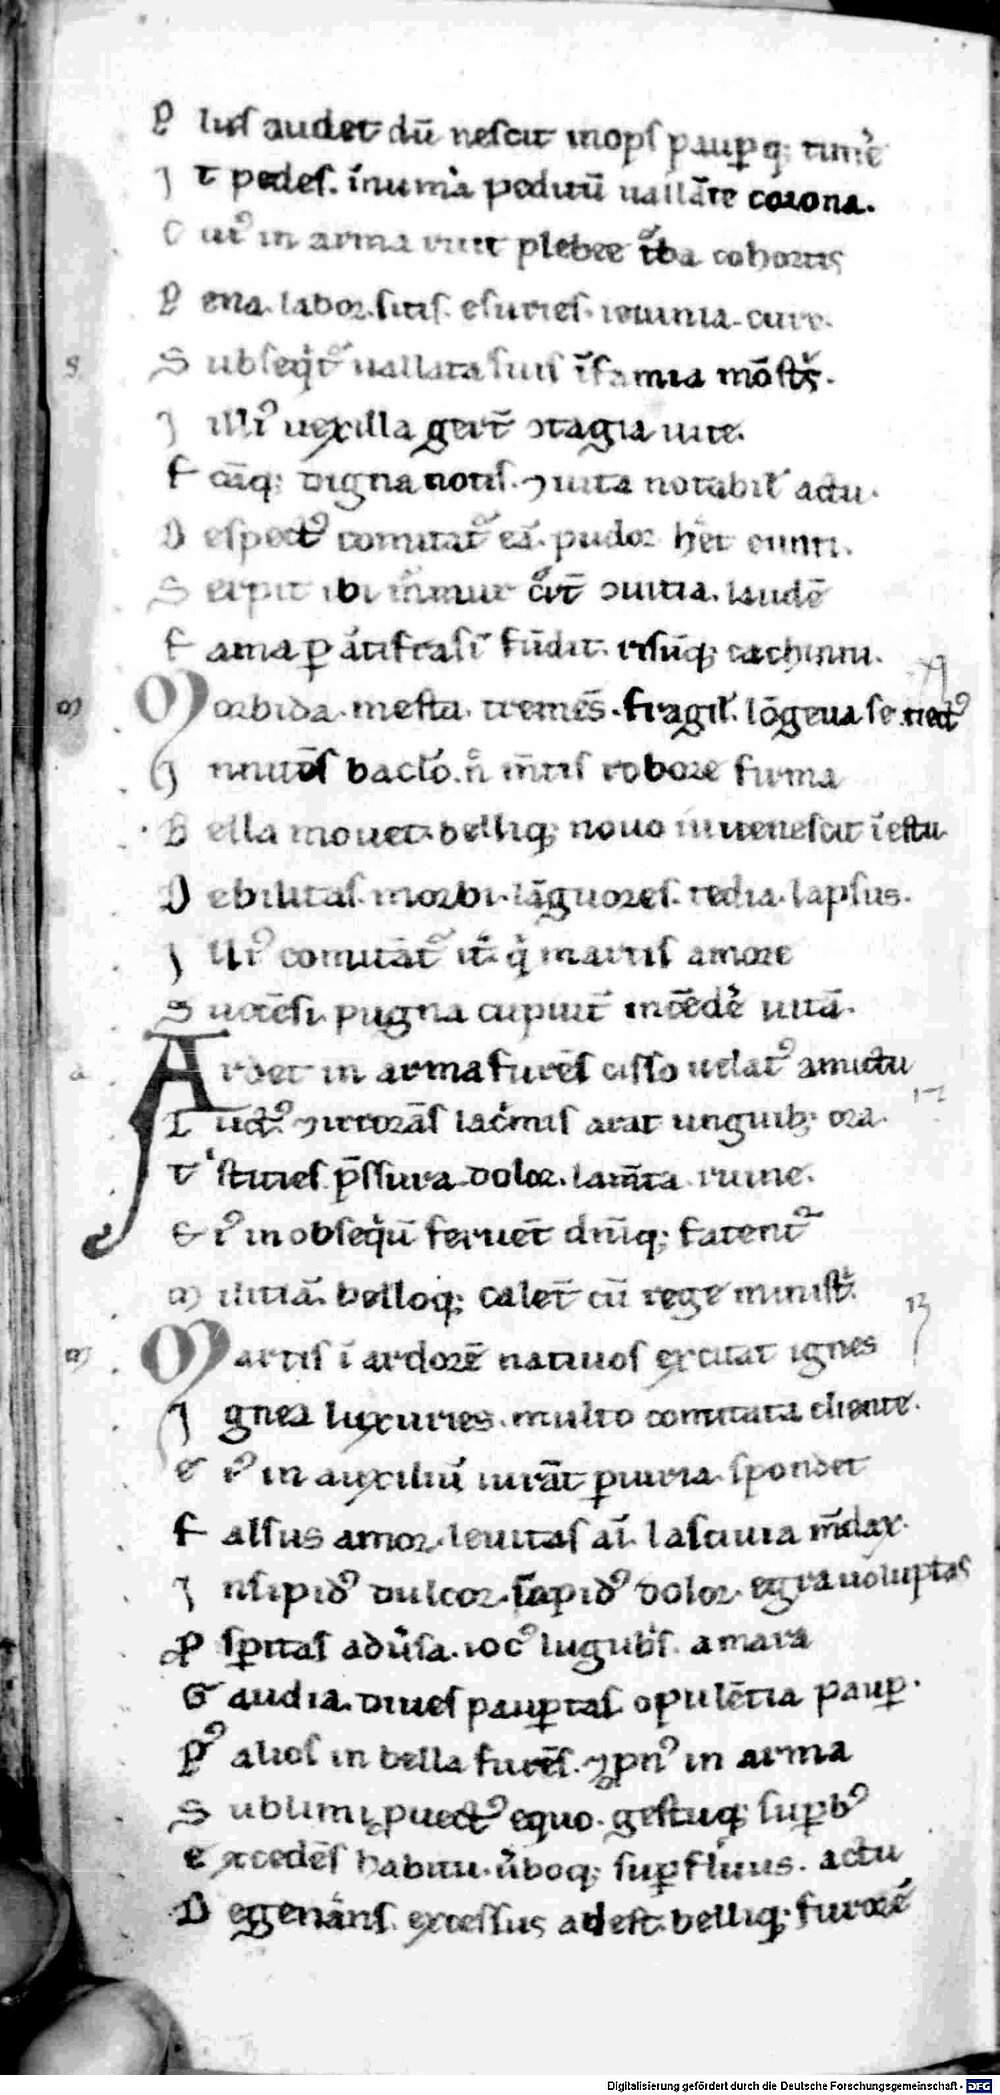 P lus audet dū nescit inops paupq; timere
I t pedes. inuma peditū uallāte corona.
C ui⁹ in arma ruit plebee tba cohortis
P ena. labor. sitis. esuries. ieiunia. cure.
S ubseqit uallata suis īfamia mōstris.
I lli⁹ uexilla gerūt ɔtagia uite.
F acāq; digna notis. ⁊ uita notabil' actu.
D espect⁹ comitat eā. pudor heret eunti.
S erpit ibi murmur ɔuitia. laudē
F ama p ātifrasī fūdit. risūq; cachinni.
M orbida. mesta. tremēs. fragil'. lōgeua senect⁹
I nnitēs baclo. n mtis robore firma
B ella mouet. belliq; nouo iuuenescit ī estu.
D ebilitas. morbi. lāguores. tedia. lapsus.
I lli⁹ comitāt it q martis amore
S uccēsi. pugna cupiūt incēdere uitā.
A rdet in arma furēs cisso uelat⁹ amictu
L uct⁹. ⁊ irrorās lacmis arat unguib; ora.
T ' sticies pssura dolor. lamta ruine.
E i⁹ in obseqūu feruēt dniq; fatent
M ilitiā. belloq; calēt cū rege ministri.
M artis ī ardorē natiuos excitat ignes
I gnea luxuries. multo comitata cliente.
E i⁹ in auxiliū iurāt piuria. spondet
F alsus amor. leuitas ai. lasciuia mdax.
I nsipid⁹ dulcor. sapid⁹ dolor. egra uoluptas
P spitas aduersa. ioc⁹ lugubris. amara
G audia. diues paupertas. opulētia pauper.
P⁹ alios in bella furēs. ⁊ pn⁹ in arma
S ublimi puect⁹ equo. gestuq; superb⁹
E xcedēs habitu. uboq; superfluus. actu
D egenans. excessus adest. belliq; furorē